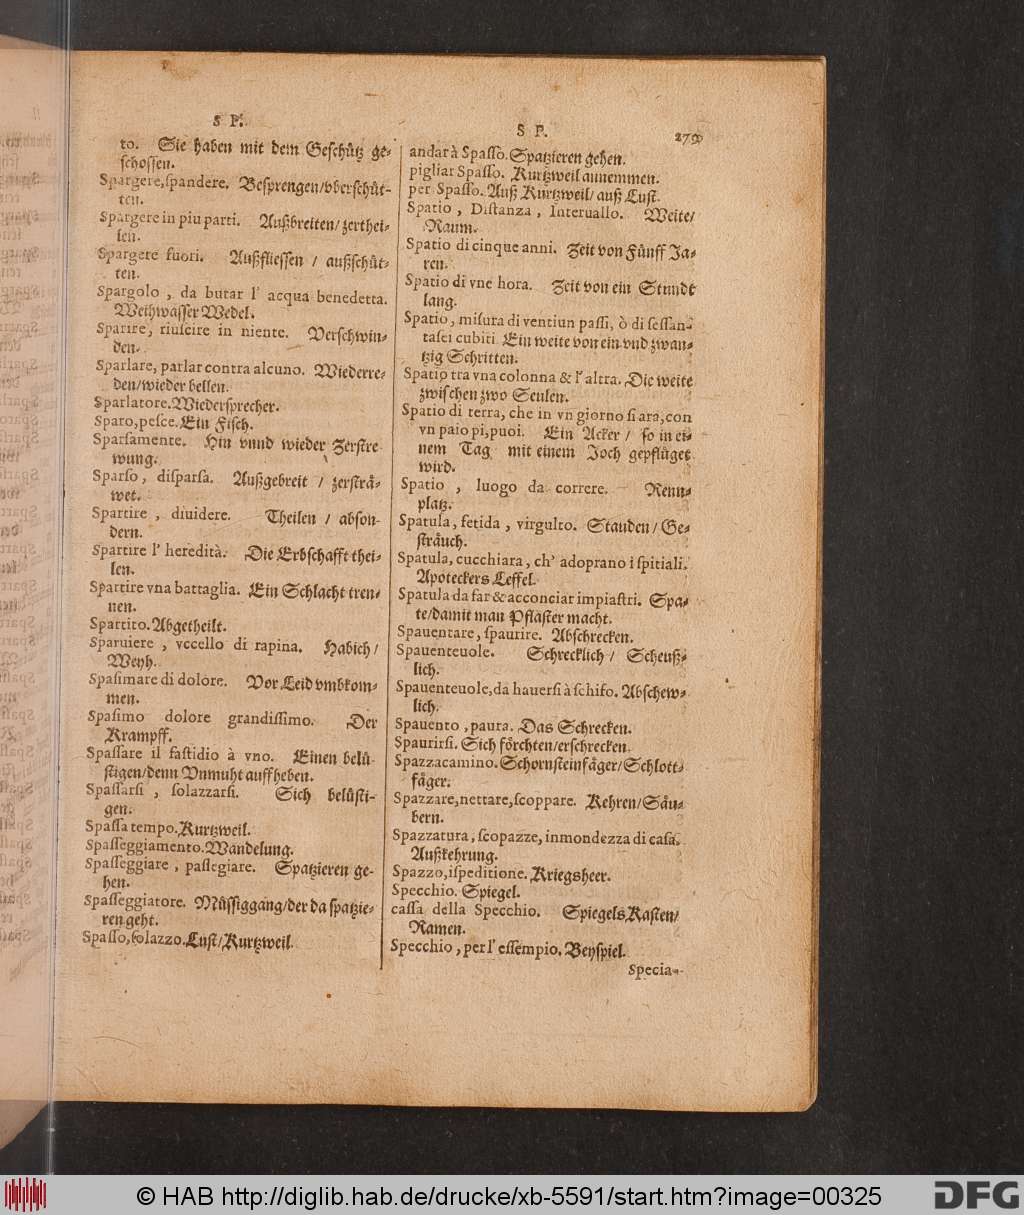 S P.
to. Sie haben mit dem Geschütz ge-
schossen.
Spargere, spandere. Besprengen/vberschüt-
ten.
Spargere in piu parti. Außbreiten/zerthei-
len.
Spargere fuori. Außfliessen / außschüt-
ten.
Spargolo , da butar l' acqua benedetta.
Weihwasser Wedel.
Sparire, riuscire in niente. Verschwin-
den.
Sparlare, parlar contra alcuno. Wiederre-
den/wieder bellen.
Sparlatore. Wiedersprecher.
Sparo, pesce. Ein Fisch.
Sparsamente. Hin vnnd wieder Zerstre
wung.
Sparso, disparsa. Außgebreit / zersträ-
wet.
Spartire , diuidere. Theilen / abson-
dern.
Spartire l' heredità. Die Erbschafft thei-
len.
Spartire vna battaglia. Ein Schlacht tren-
nen.
Spartito. Abgetheilt.
Sparuiere , vccello di rapina. Habich/
Weyh.
Spasimare di dolore. Vor Leid vmbkom-
men.
Spasimo dolore grandissimo. Der
Krampff.
Spassare il fastidio à vno. Einen belü-
stigen/denn Vnmuht auffheben.
Spassarsi , solazzarsi. Sich belüsti-
gen.
Spassa tempo. Kurtzweil.
Spasseggiamento. Wandelung.
Spasseggiare , passegiare. Spatzieren ge-
hen.
Spasseggiatore. Müssiggang/der da spatzie-
ren geht.
Spasso, solazzo. Lust/Kurtzweil.
S P. 279
andar à Spasso. Spatzieren gehen.
pigliar Spasso. Kurtzweil annemmen.
per Spasso. Auß Kurtzweil/ auß Lust.
Spatio , Distanza , Interuallo. Weite/
Raum.
Spatio di cinque anni. Zeit von Fünff Ja-
ren.
Spatio di vne hora. Zeit von ein Stundt
lang.
Spatio, misura di ventiun passi, ò di sessan-
tasei cubiti. Ein weite von ein vnd zwan-
tzig Schritten.
Spatio tra vna colonna & l' altra. Die weite
zwischen zwo Seulen.
Spatio di terra, che in vn giorno si ara, con
vn paio pi, puoi. Ein Acker / so in ei-
nem Tag mit einem Joch gepflüget
wird.
Spatio , luogo da correre. Renn-
platz.
Spatula, fetida , virgulto. Stauden/ Ge-
sträuch.
Spatula, cucchiara , ch' adoprano i spitiali.
Apoteckers Leffel.
Spatula da far & acconciar impiastri. Spa-
te/damit man Pflaster macht.
Spauentare, spaurire. Abschrecken.
Spauenteuole. Schrecklich / Scheuß-
lich.
Spauenteuole, da hauersi à schifo. Abschew-
lich.
Spauento , paura. Das Schrecken.
Spaurirsi. Sich förchten/erschrecken.
Spazzacamino. Schornsteinfäger/Schlott-
fäger.
Spazzare, nettare, scoppare. Kehren/Säu-
bern.
Spazzatura, scopazze, inmondezza di casa.
Außkehrung.
Spazzo, ispeditione. Kriegsheer.
Specchio. Spiegel.
cassa della Specchio. Spiegels Kasten/
Ramen.
Specchio , per l' essempio. Beyspiel.
Specia-
© HAB http://diglib.hab.de/drucke/xb-5591/start.htm?image=00325
DFG